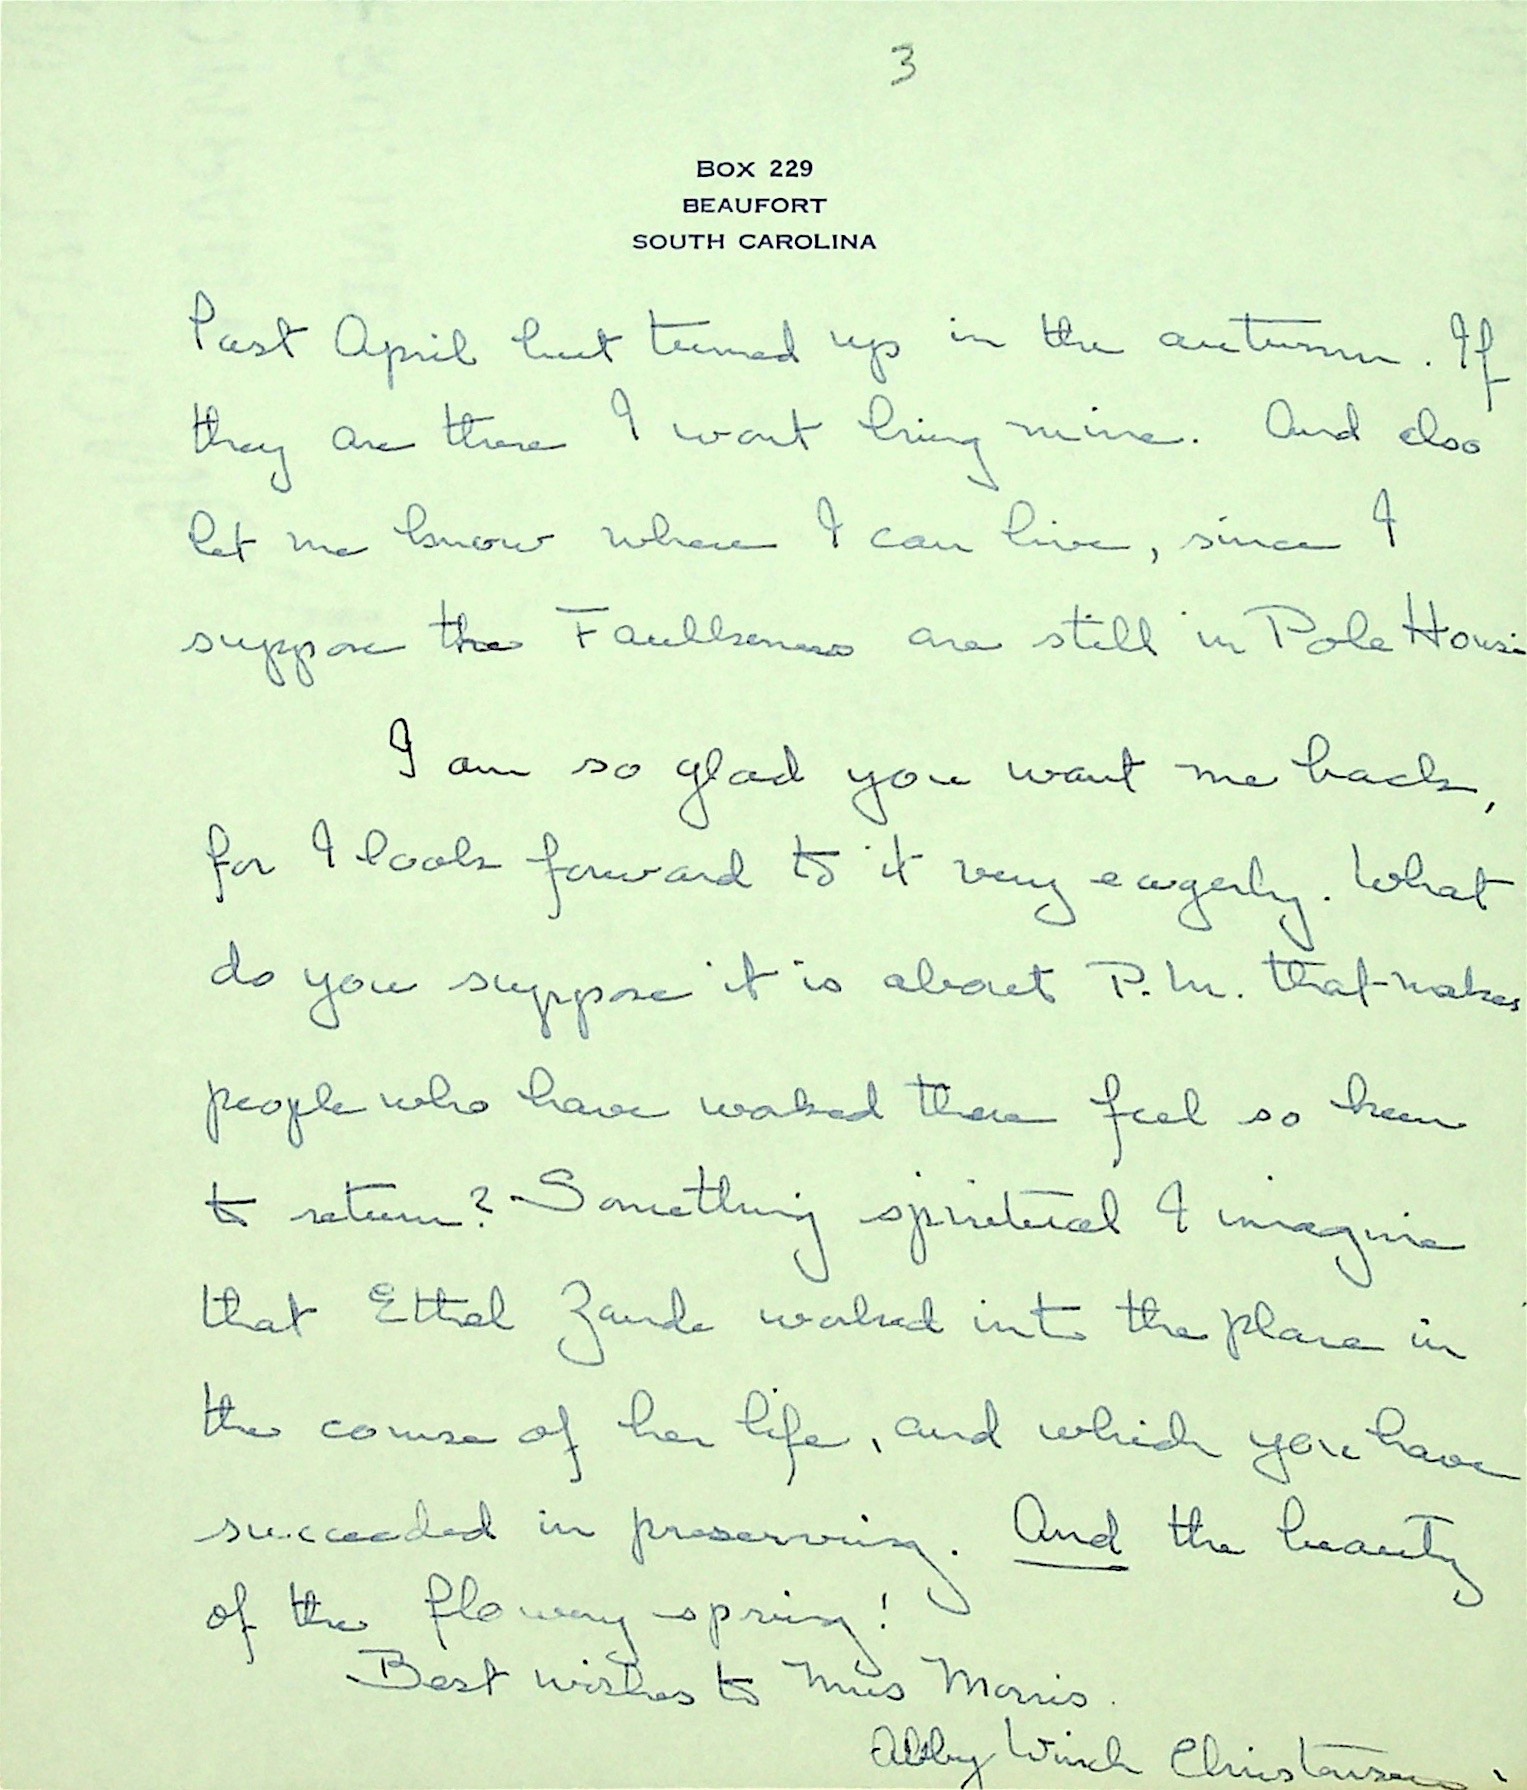 3
BOX 229
BEAUFORT
SOUTH CAROLINA
last April but turned up in the autumn. If
they are there I wont bring mine. And also
let me know where I can live, since I
suppose the Faulkeners are still in Pole House
I am so glad you want me back,
for I look forward to it very eagerly. What
do you suppose it is about P.M. that makes
people who have worked there feel so keen
to return? Something spiritual I imagine
that Ethel Zande worked into the place in
the course of her life, and which you have
succeeded in preserving. And the beauty
of the flowery spring!
Best wishes to Miss Morris.
Abby Winch Christensen.